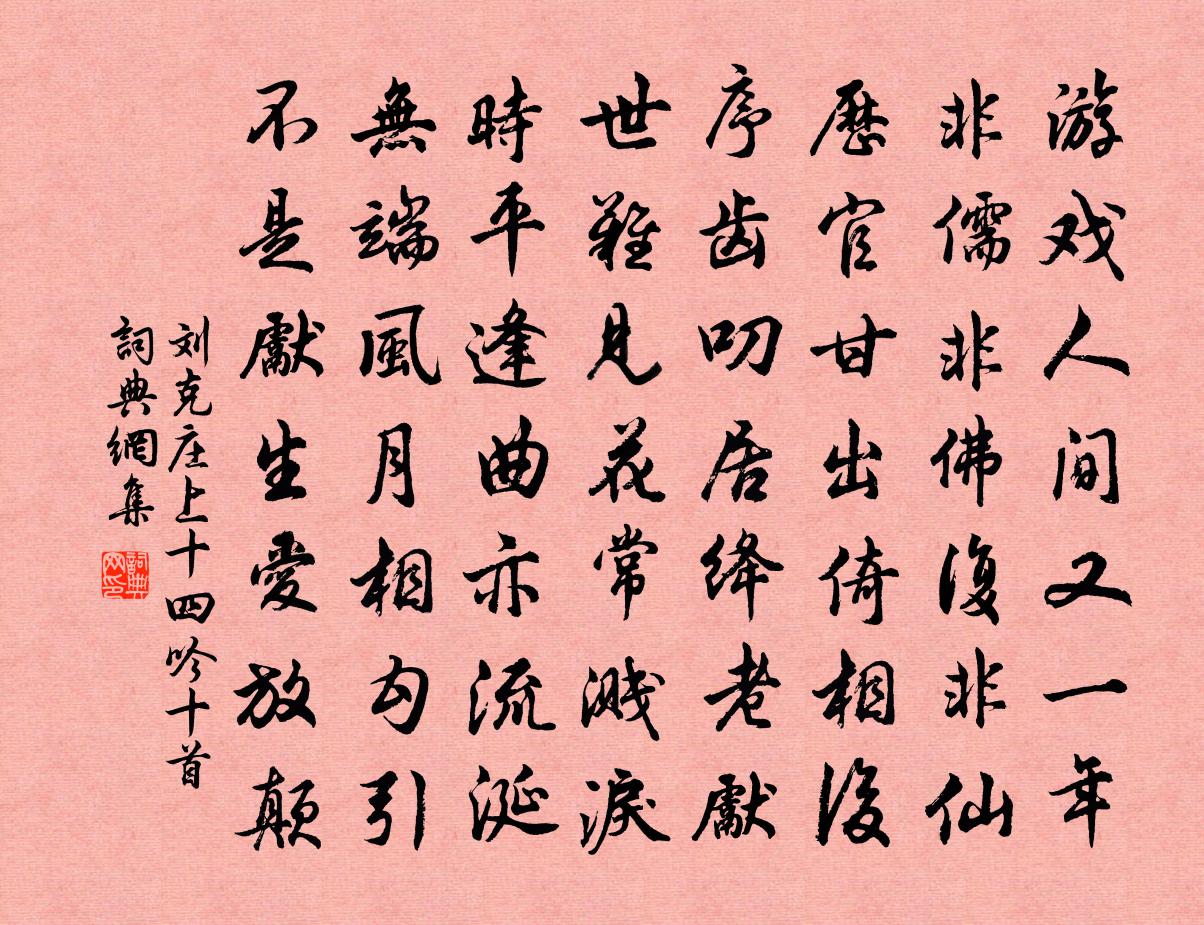 游戏人间又一年
非儒非佛復非仙
歷官甘出倚相後
序齿叨居绛老獻
世難見花常溅淚
時平逢曲亦流涎
無端風月相勾引
不是獻生愛放颠
刘克庄上十四吟十首
詞典網集
詞典网印